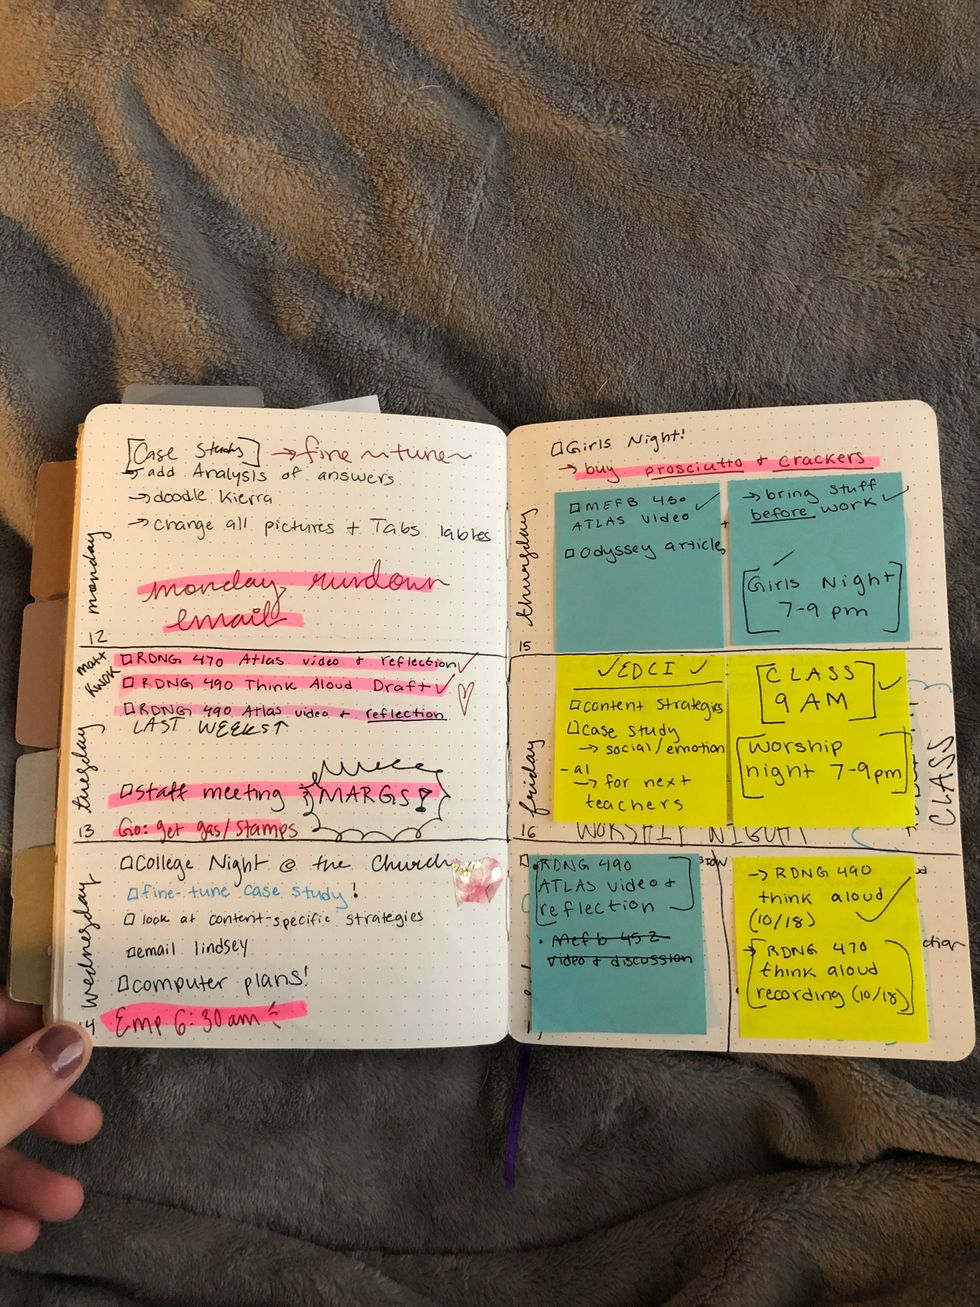 [Case Study] → fine ~ tune ~
→ add Analysis of answers
→ doodle Kierra
→ change all pictures + Tabs lables
monday rundown
email
monday
12
matt
Kwok
□ RDNG 470 Atlas video + reflection ✓
□ RDNG 490 Think Aloud Draft ✓
□ RDNG 490 Atlas video + reflection
LAST WEEKS ↑
□ Staff meeting
MARGS!
Go: get gas/stamps
tuesday
13
□ College Night @ the Church
□ fine-tune case study!
□ look at content-specific strategies
□ email lindsey
□ computer plans!
Emp 6:30am
wednesday
14
□ Girls Night!
→ buy prosciutto + crackers
□ MEFB 450 ✓
ATLAS video
□ Odyssey articles
→ bring stuff ✓
before work
[Girls Night
7-9 pm]
thursday
15
✓ EDCI ✓
□ content strategies
□ case study
→ social/emotion
-al
→ for next
teachers
[CLASS
9 AM] ✓
[worship
night 7-9pm]
friday
16
WORSHIP NIGHT
CLASS
RDNG 490
ATLAS video +
reflection
• Mefb 452
video + discussion
→ RDNG 490
think aloud
(10/18) ✓
→ RDNG 470
think aloud
recording (10/18)